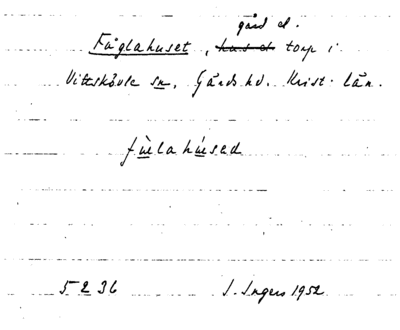 gård el.
Fåglahuset, hus el torp i
Vittskövle sn. Gärds hd. Krist. län.
fùlahúsed
5236 I. Ingers 1952